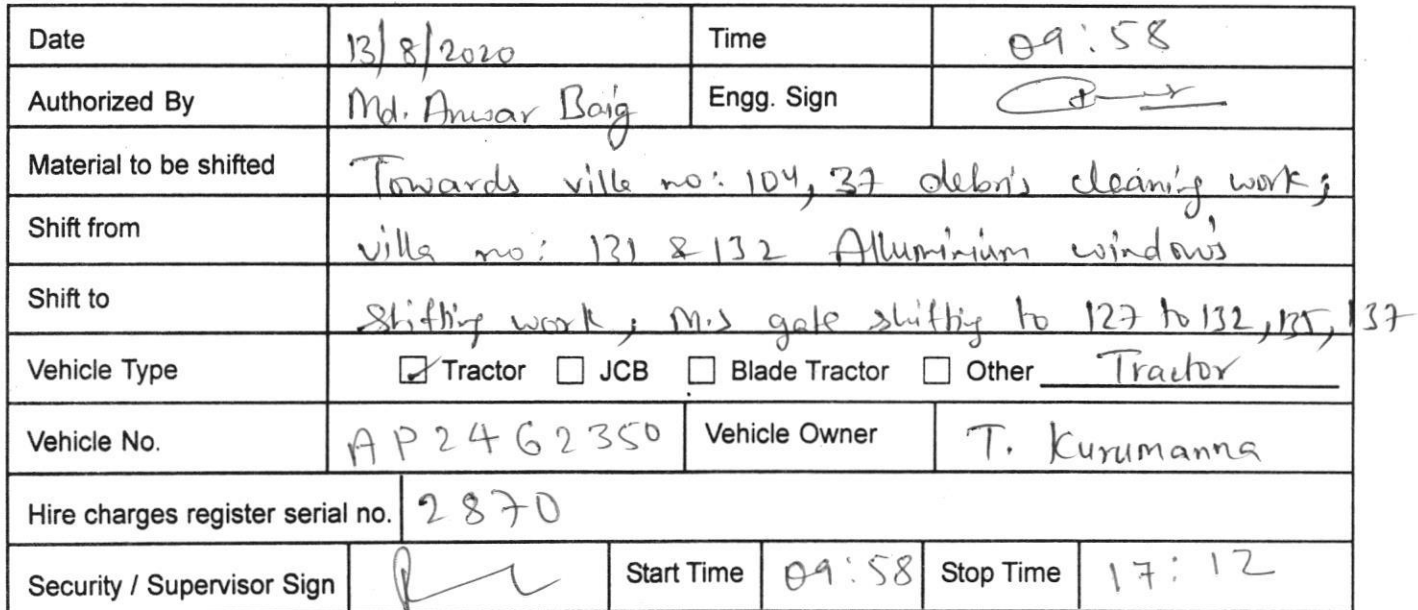 Date 13/8/2020 Time 09:58
Authorized By Md. Anwar Baig Engg. Sign
Material to be shifted Towards ville no: 104, 37 debris cleaning work;
Shift from villa no: 131 & 132 Alluminium windows
Shift to Shifting work; M.s gate shifting to 127 to 132, 135, 137
Vehicle Type Tractor JCB Blade Tractor Other Tractor
Vehicle No. AP24G2350 Vehicle Owner T. Kurumanna
Hire charges register serial no. 2870
Security / Supervisor Sign Start Time 09:58 Stop Time 17:12